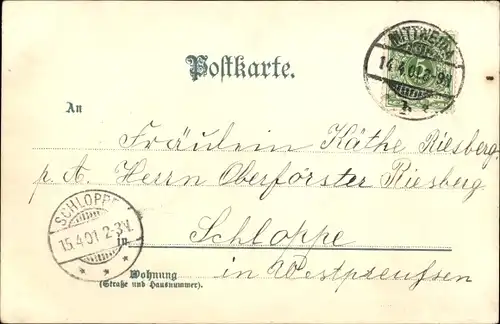 MITTWEIDA
14.4.01 8-9V.
Postkarte.
An
Fräulein Käthe Riesberg
p. A. Herrn Oberförster Riesberg
SCHLOPPE
15.4.01 2-3V.
in Schloppe
in Westpreußen
Wohnung
(Straße und Hausnummer).